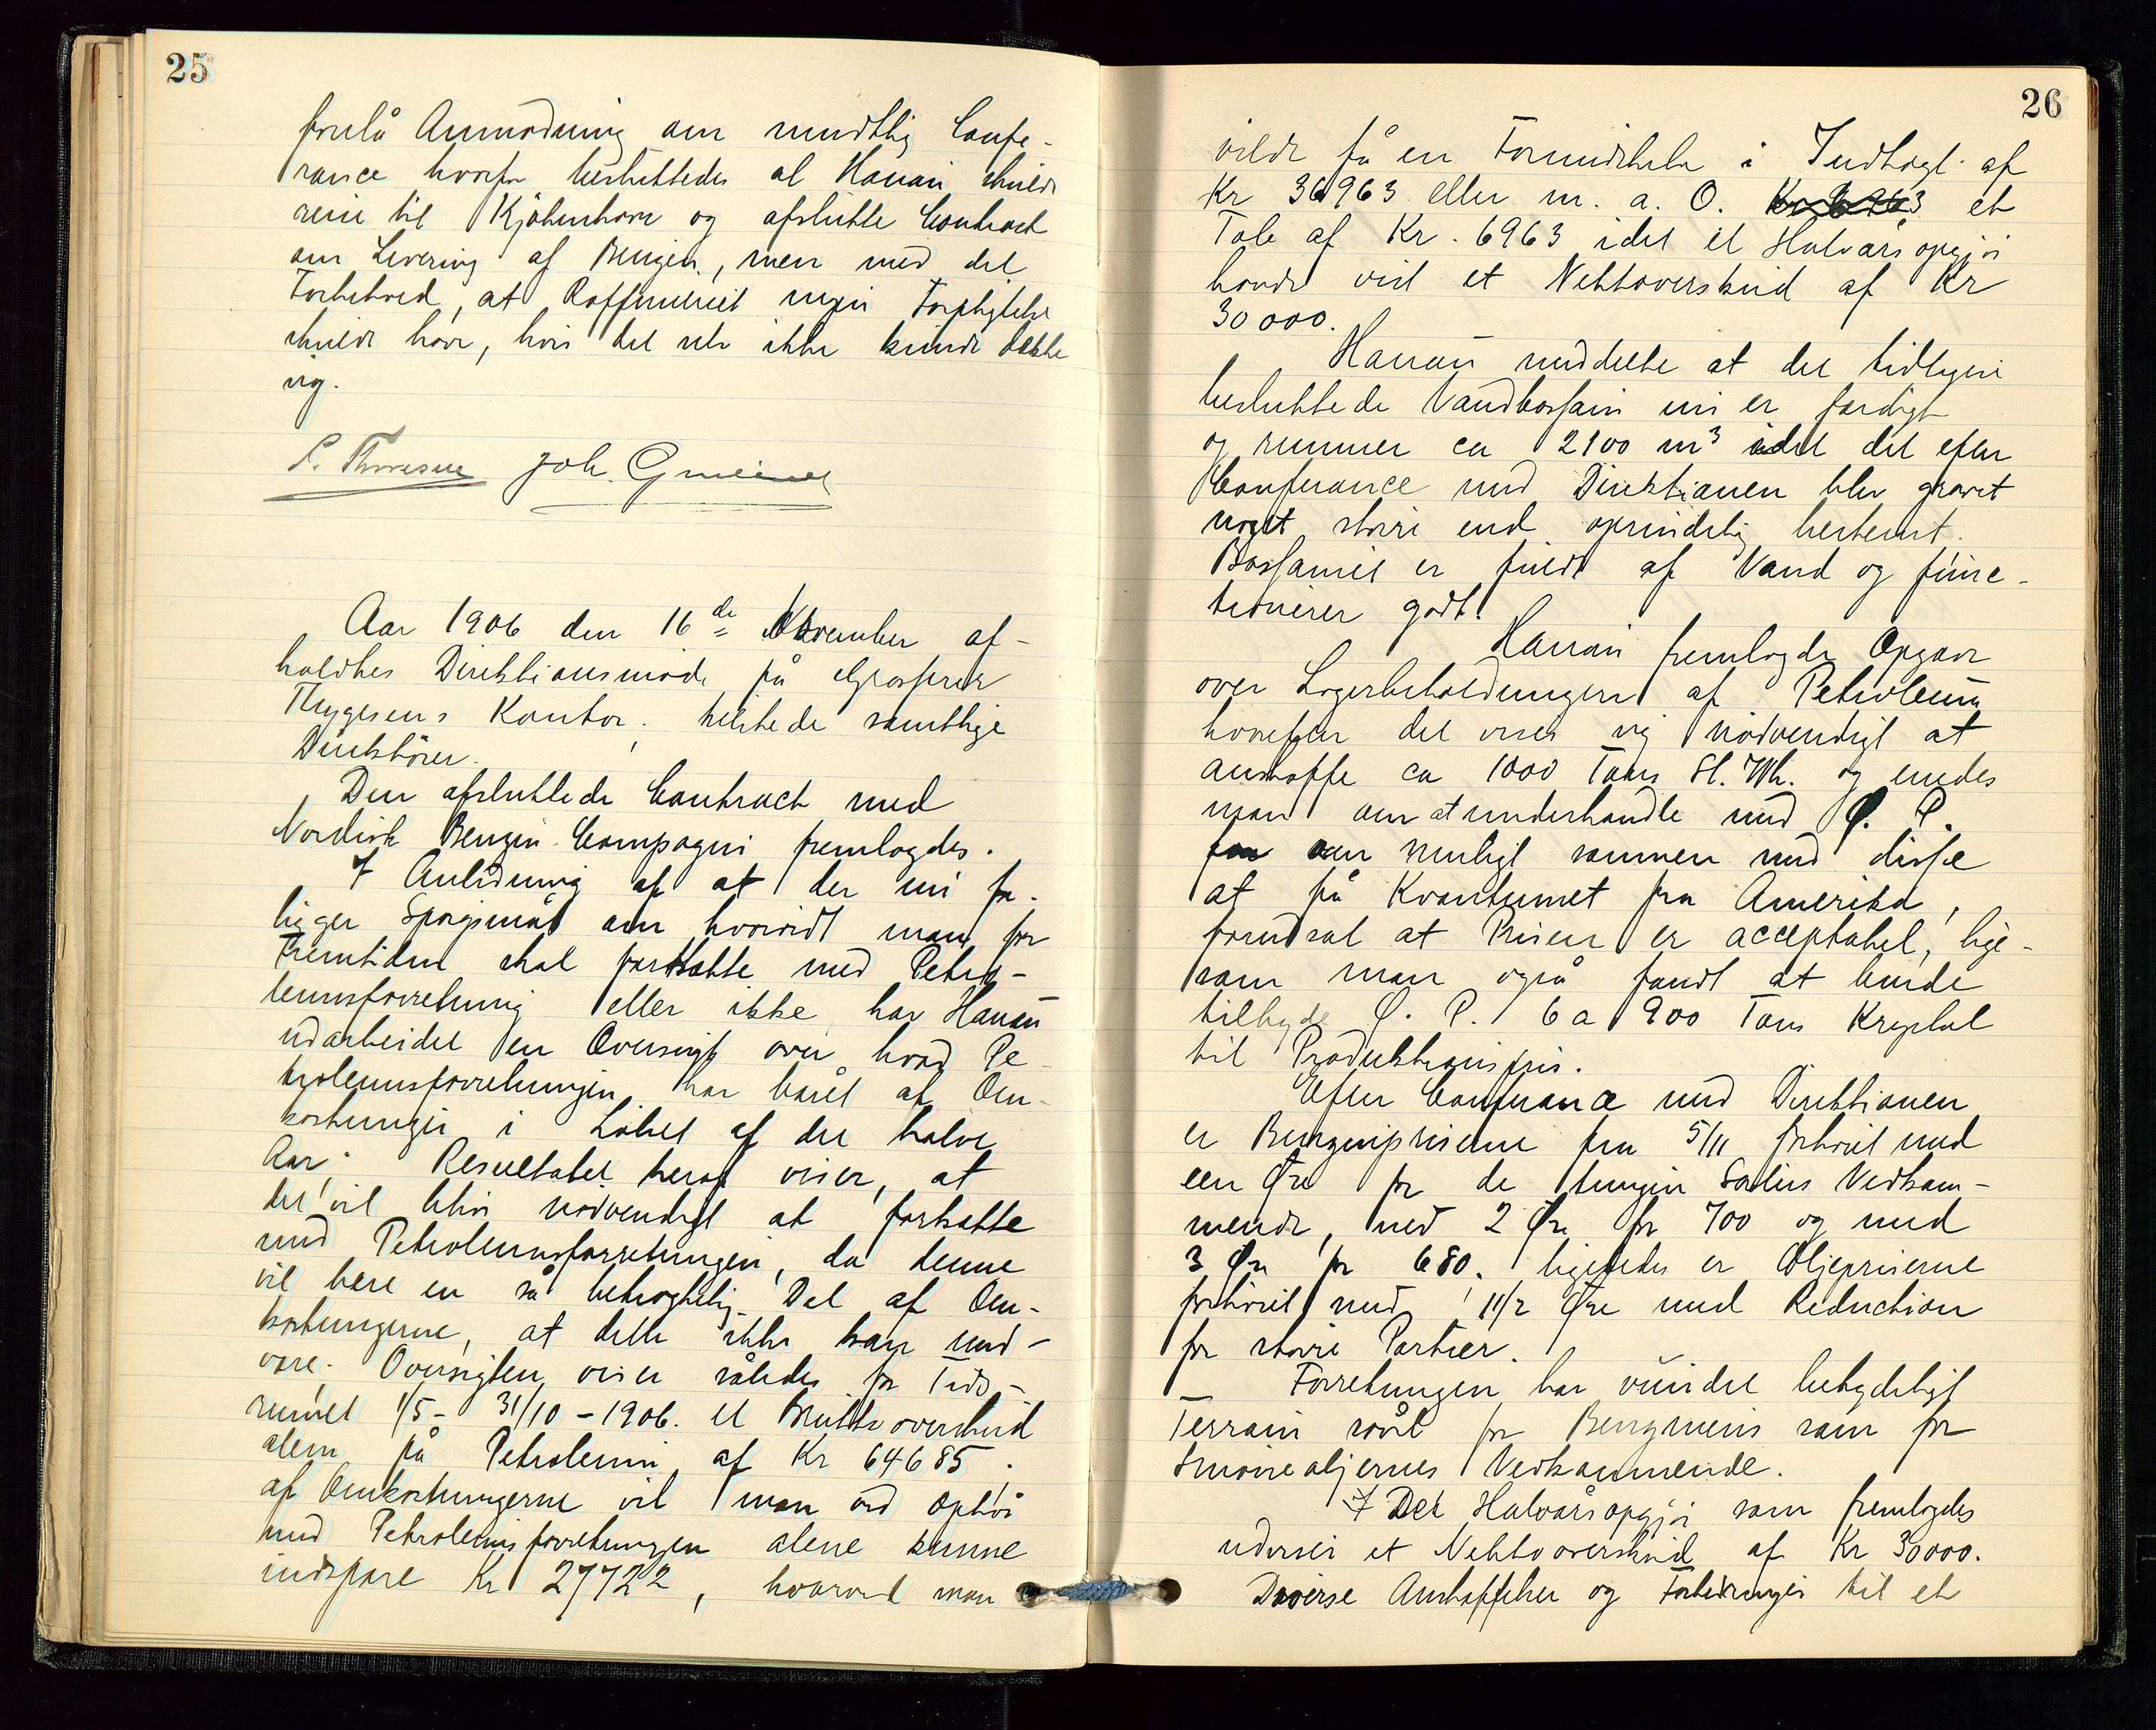 25
forelå Anmodning om mundtlig Confe-
rance hvorfor besluttedes at Hanan skulde
reise til Kjøbenhavn og afslutte Contract
om Levering af Benzin, men med det
Forbehold, at Raffineriet ingen Forpligtelse
skulde have, hvis det selv ikke kunde dække
sig.
P. Thoresen Joh.
Aar 1906 den 16de November af-
holdtes Direktionsmøde på Grosserer
Thygesens Kontor, tilstede samtlige
Direktører.
Den afsluttede Contract med
Nordisk Benzin Compagni fremlagdes.
I Anledning af at der nu fo-
ligger Spørgsmål om hvorvidt man for
Fremtiden skal fortsætte med Petro-
leumsforretning eller ikke har Hanan
udarbeidet en Oversigt over hvad Pe-
troleumsforretningen har båret af Om-
kostninger i Løbet af det halve
Aar. Resultatet heraf viser, at
det vil blive nødvendigt at fortsætte
med Petroleumsforretningen, da denne
vil bære en så betragtelig Del af Om-
kostningerne, at dette ikke kan und-
være. Oversigten viser således for Tids-
rummet 1/5 - 31/10 - 1906. et Bruttooverskud
alene på Petroleum af Kr 64685.
af Omkostningerne vil man ved Ophør
med Petroleumsforretningen alene kunne
indspare Kr 27722, hvorved man
26
vilde få en Formindskelse i Indtægt af
Kr 36963 eller m. a. O. Kr 6963 et
Tab af Kr. 6963 idet et Halvårsopgjør
havde vist et Nettooverskud af Kr
30000.
Hanan meddelte at det tidligere
besluttede Vandbassain nu er færdigt
og rummer ca 2100 m3 idet det efter
Conferance med Direktionen blev gravet
noget større end oprindelig bestemt.
Bassainet er fuldt af Vand og func-
tionerer godt.
Hanan fremlagde Opgave
over Lagerbeholdningen af Petroleum
hvorefter det viser sig nødvendigt at
anskaffe ca 1000 Tons St. Wh. og enedes
man om at underhandle med Ø. P.
om muligt sammen med disse
at få Kvantumet fra Amerika,
forudsat at Prisen er acceptabel, lige-
som man også fandt at burde
tilbyde Ø. P. 6 a 900 Tons Krystal
til Produktionspris.
Efter Conferance med Direktionen
er Benzinpriserne fra 5/11 forhøiet med
een Øre for de tungere Sorters Vedkom-
mende, med 2 Øre for 700 og med
3 Øre for 680. ligeledes er Oljepriserne
forhøiet med 1 1/2 Øre med Reduction
for større Partier.
Forretningen har vundet betydeligt
Terrain såvel for Benzinens som for
Smøreoljernes Vedkommende.
I Det Halvårsopgjør som fremlagdes
udviser et Nettooverskud af Kr 30000.
Diverse Anskaffelser og Forbedringer til et